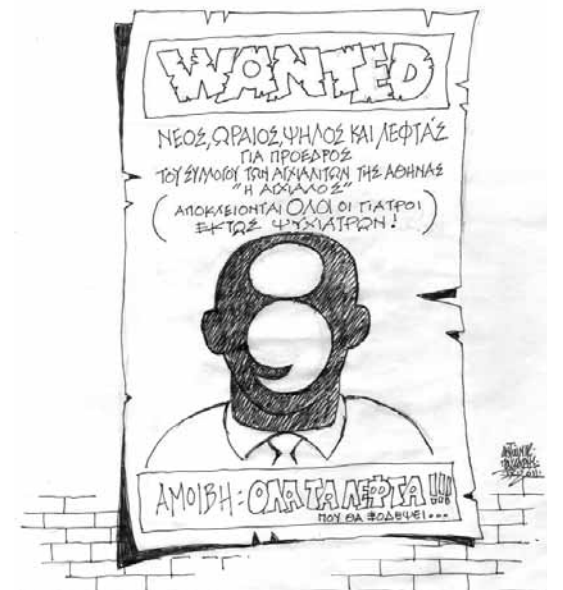 WANTED
ΝΕΟΣ, ΩΡΑΙΟΣ, ΨΗΛΟΣ ΚΑΙ ΛΕΦΤΑΣ
ΓΙΑ ΠΡΟΕΔΡΟΣ
ΤΟΥ ΣΥΛΛΟΓΟΥ ΤΩΝ ΑΓΧΙΑΛΙΤΩΝ ΤΗΣ ΑΘΗΝΑΣ
"Η ΑΓΧΙΑΛΟΣ"
(ΑΠΟΚΛΕΙΟΝΤΑΙ ΟΛΟΙ ΟΙ ΓΙΑΤΡΟΙ
ΕΚΤΟΣ ΨΥΧΙΑΤΡΩΝ!)
ΑΜΟΙΒΗ: ΟΛΑ ΤΑ ΛΕΦΤΑ!!!
ΠΟΥ ΘΑ ΞΟΔΕΨΕΙ...